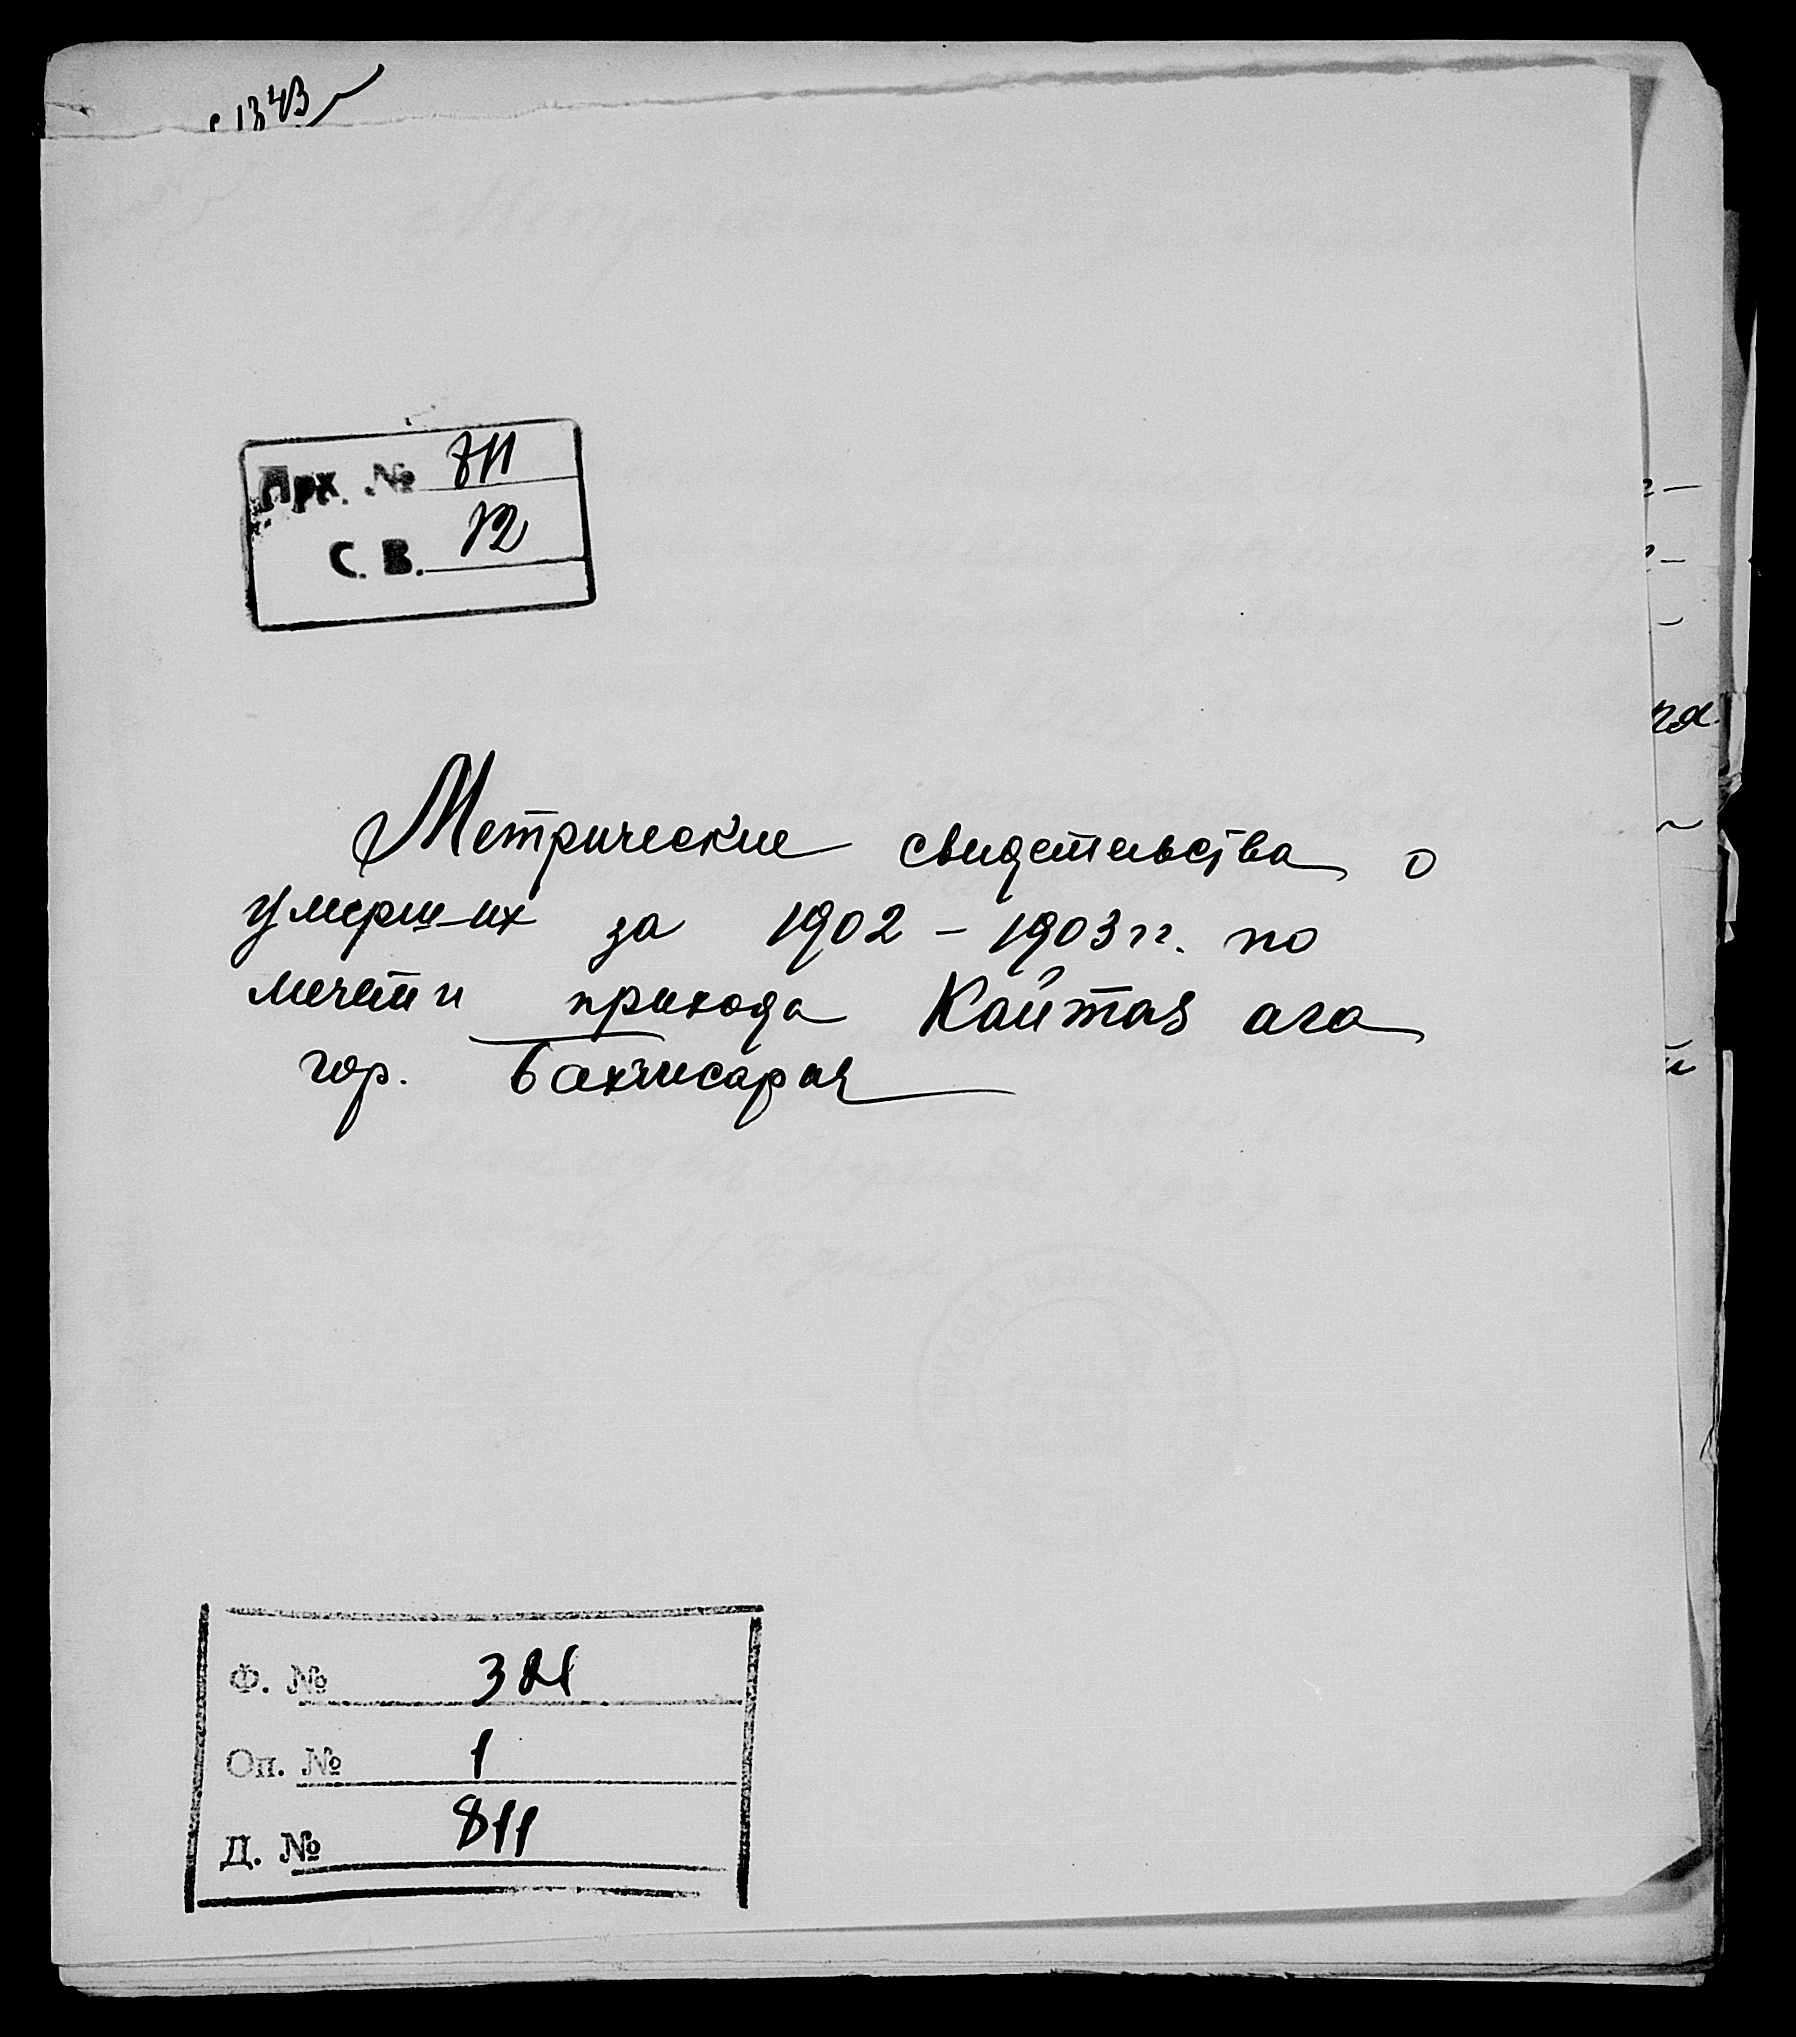 1343
Арх. № 811
С. В. 12
Метрические свидетельства о
умерших за 1902 – 1903 гг. по
мечети прихода Кайтаз ага
гор. Бахчисарая
Ф. № 321
Оп. № 1
Д. № 811